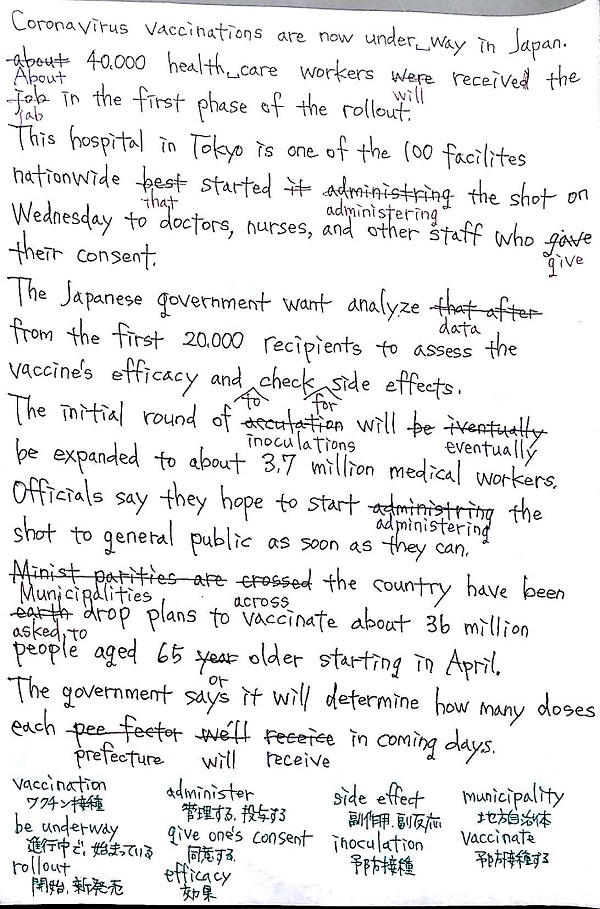 Coronavirus vaccinations are now under way in Japan.
about 40.000 health care workers were received the
About will
job in the first phase of the rollout.
jab
This hospital in Tokyo is one of the 100 facilites
nationwide best started it administring the shot on
that administering
Wednesday to doctors, nurses, and other staff who gave
give
their consent.
The Japanese government want analyze that after
data
from the first 20.000 recipients to assess the
vaccine's efficacy and check side effects.
to for
The initial round of acculation will be iventually
inoculations eventually
be expanded to about 3.7 million medical workers.
Officials say they hope to start administring the
administering
shot to general public as soon as they can.
Minist parities are crossed the country have been
Municipalities across
earth drop plans to vaccinate about 36 million
asked to
people aged 65 year older starting in April.
or
The government says it will determine how many doses
each pee fector we'll receice in coming days.
prefecture will receive
vaccination administer side effect municipality
ワクチン接種 管理する、投与する 副作用、副反応 地方自治体
be underway give one's consent inoculation vaccinate
進行中で、始まっている 同意する 予防接種 予防接種する
rollout efficacy
開始、新発売 効果